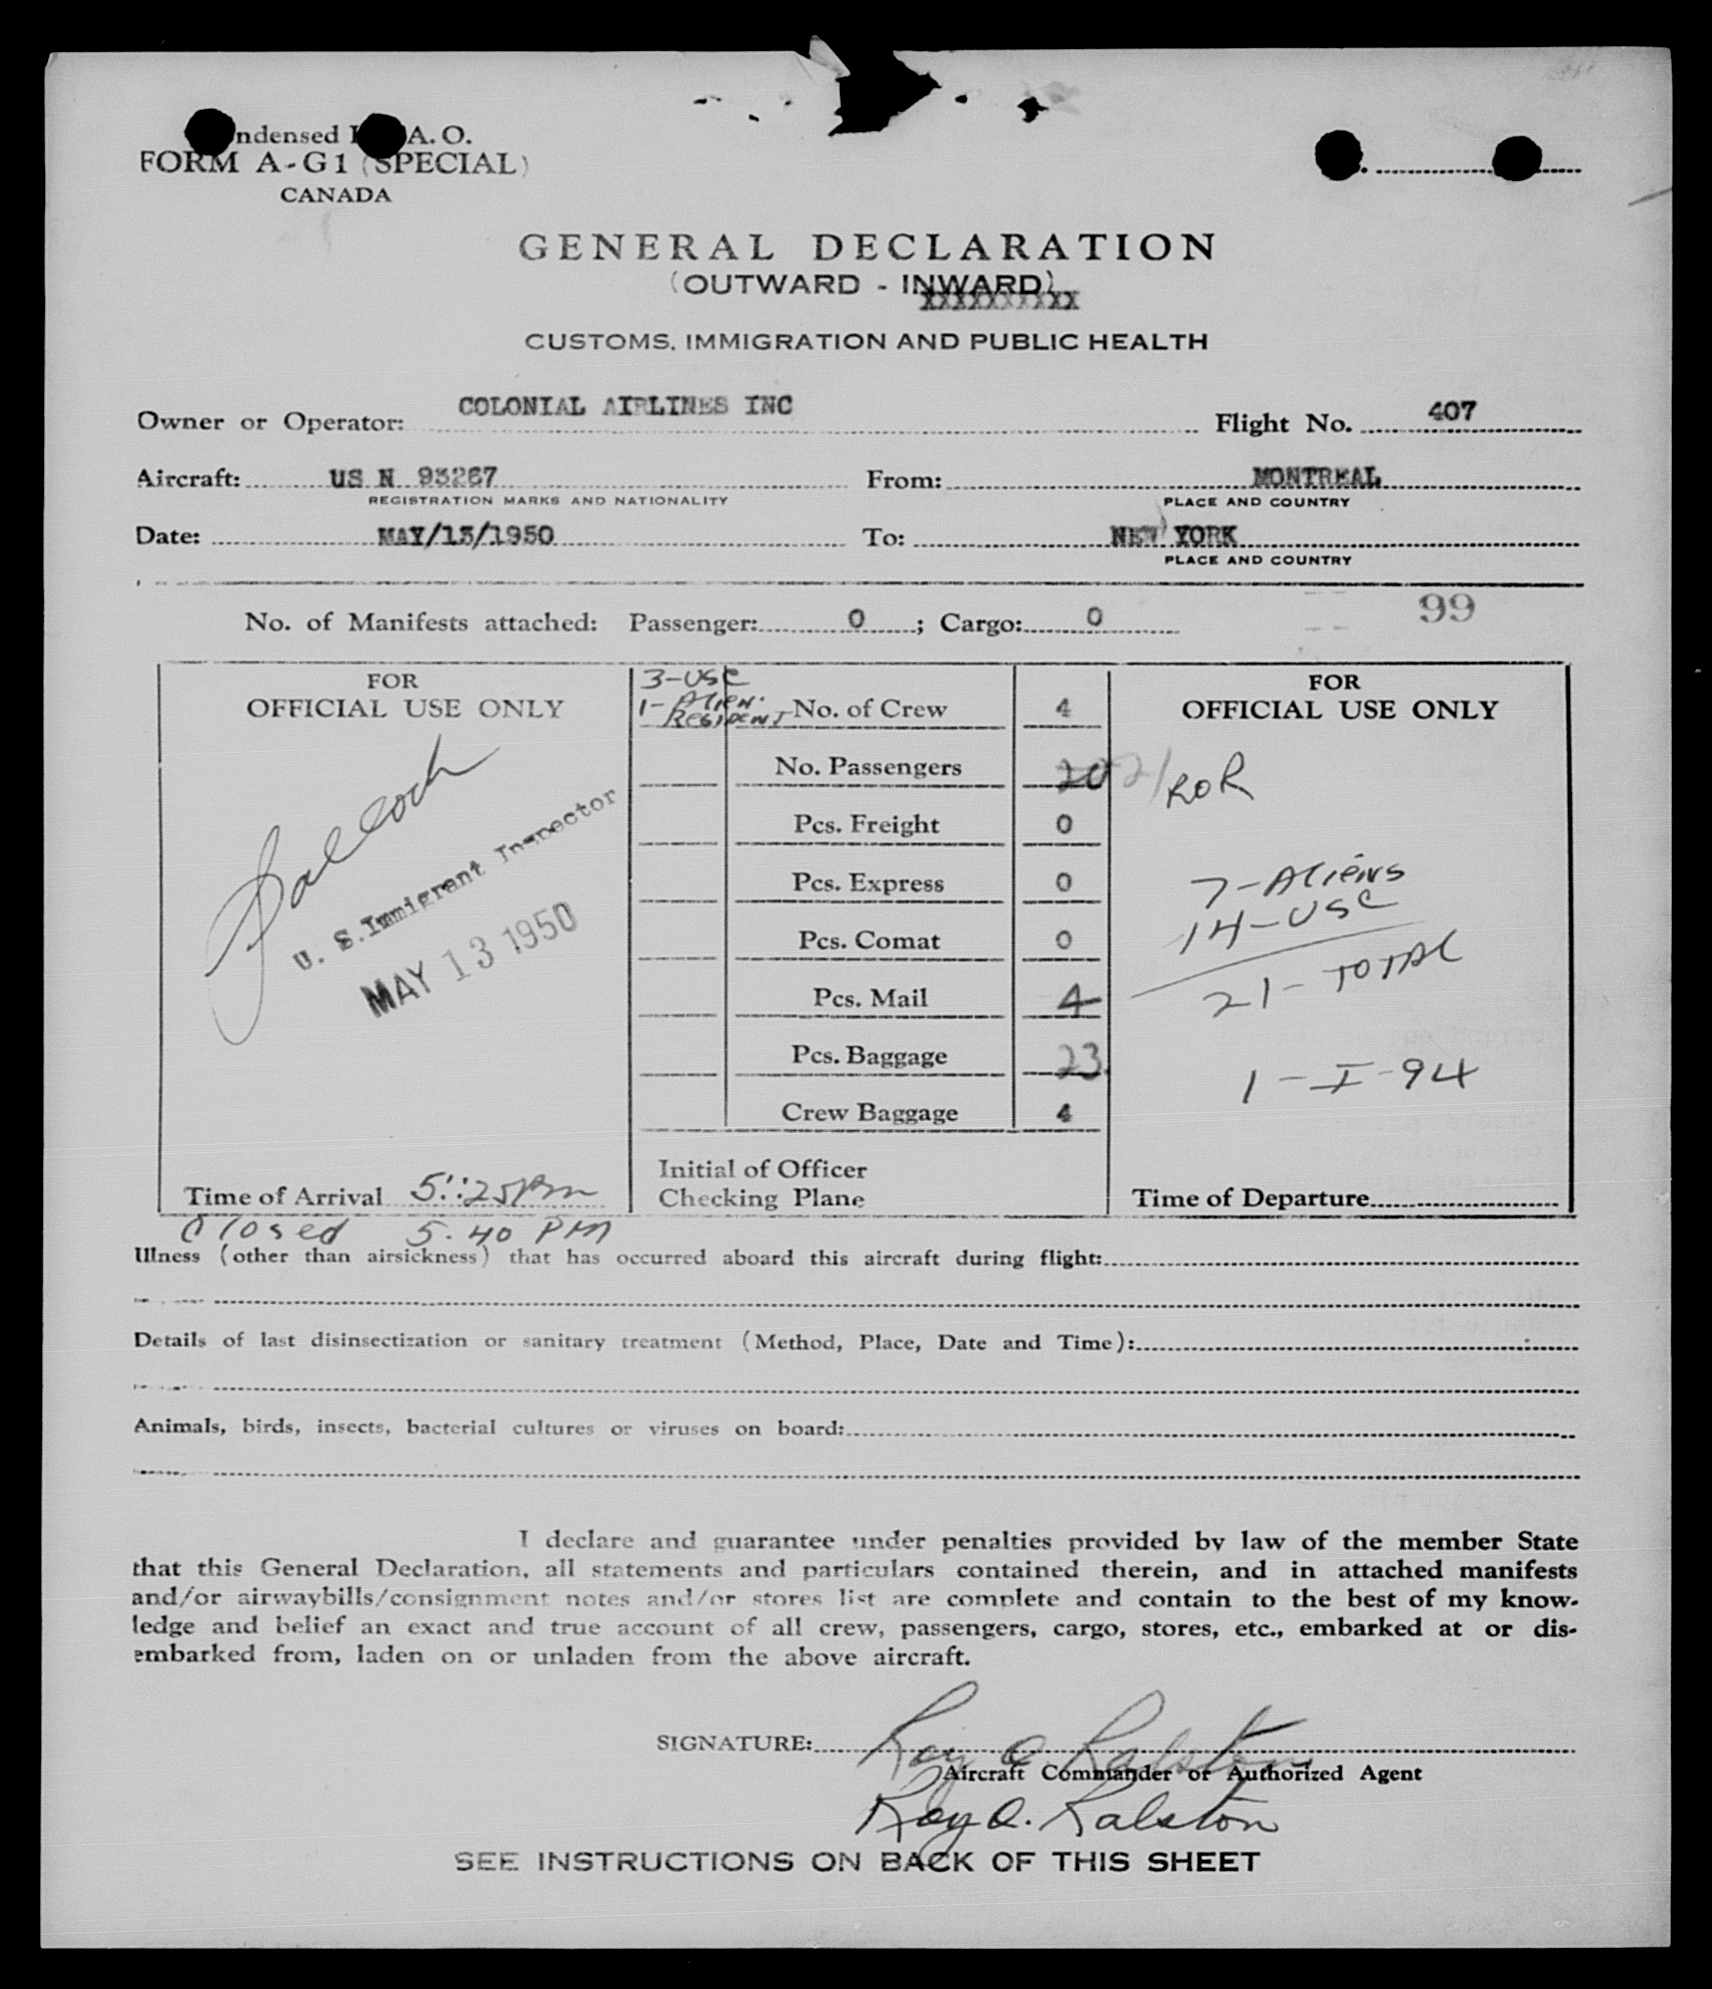 ndensed I A. O.
FORM A-G1 (SPECIAL)
CANADA
GENERAL DECLARATION
(OUTWARD - INWARD)
XXXXXXXXXX
CUSTOMS, IMMIGRATION AND PUBLIC HEALTH
Owner or Operator: COLONIAL AIRLINES INC Flight No. 407
Aircraft: US N 93267 From: MONTREAL
REGISTRATION MARKS AND NATIONALITY PLACE AND COUNTRY
Date: MAY/13/1950 To: NEW YORK
PLACE AND COUNTRY
No. of Manifests attached: Passenger: 0 ; Cargo: 0 99
FOR
OFFICIAL USE ONLY
U. S. Immigrant Inspector
MAY 13 1950
Time of Arrival 5:25 Pm
Closed 5.40 PM
3-USC
1-Alien.
RESIDENT
No. of Crew 4
No. Passengers 20 21
Pcs. Freight 0
Pcs. Express 0
Pcs. Comat 0
Pcs. Mail 4
Pcs. Baggage 23
Crew Baggage 4
Initial of Officer
Checking Plane
FOR
OFFICIAL USE ONLY
ROR
7-Aliens
14-USC
21-TOTAL
1-I-94
Time of Departure
Illness (other than airsickness) that has occurred aboard this aircraft during flight:
Details of last disinsectization or sanitary treatment (Method, Place, Date and Time):
Animals, birds, insects, bacterial cultures or viruses on board:
I declare and guarantee under penalties provided by law of the member State
that this General Declaration, all statements and particulars contained therein, and in attached manifests
and/or airwaybills/consignment notes and/or stores list are complete and contain to the best of my know-
ledge and belief an exact and true account of all crew, passengers, cargo, stores, etc., embarked at or dis-
embarked from, laden on or unladen from the above aircraft.
SIGNATURE: Roy O. Ralston
Aircraft Commander or Authorized Agent
Roy O. Ralston
SEE INSTRUCTIONS ON BACK OF THIS SHEET